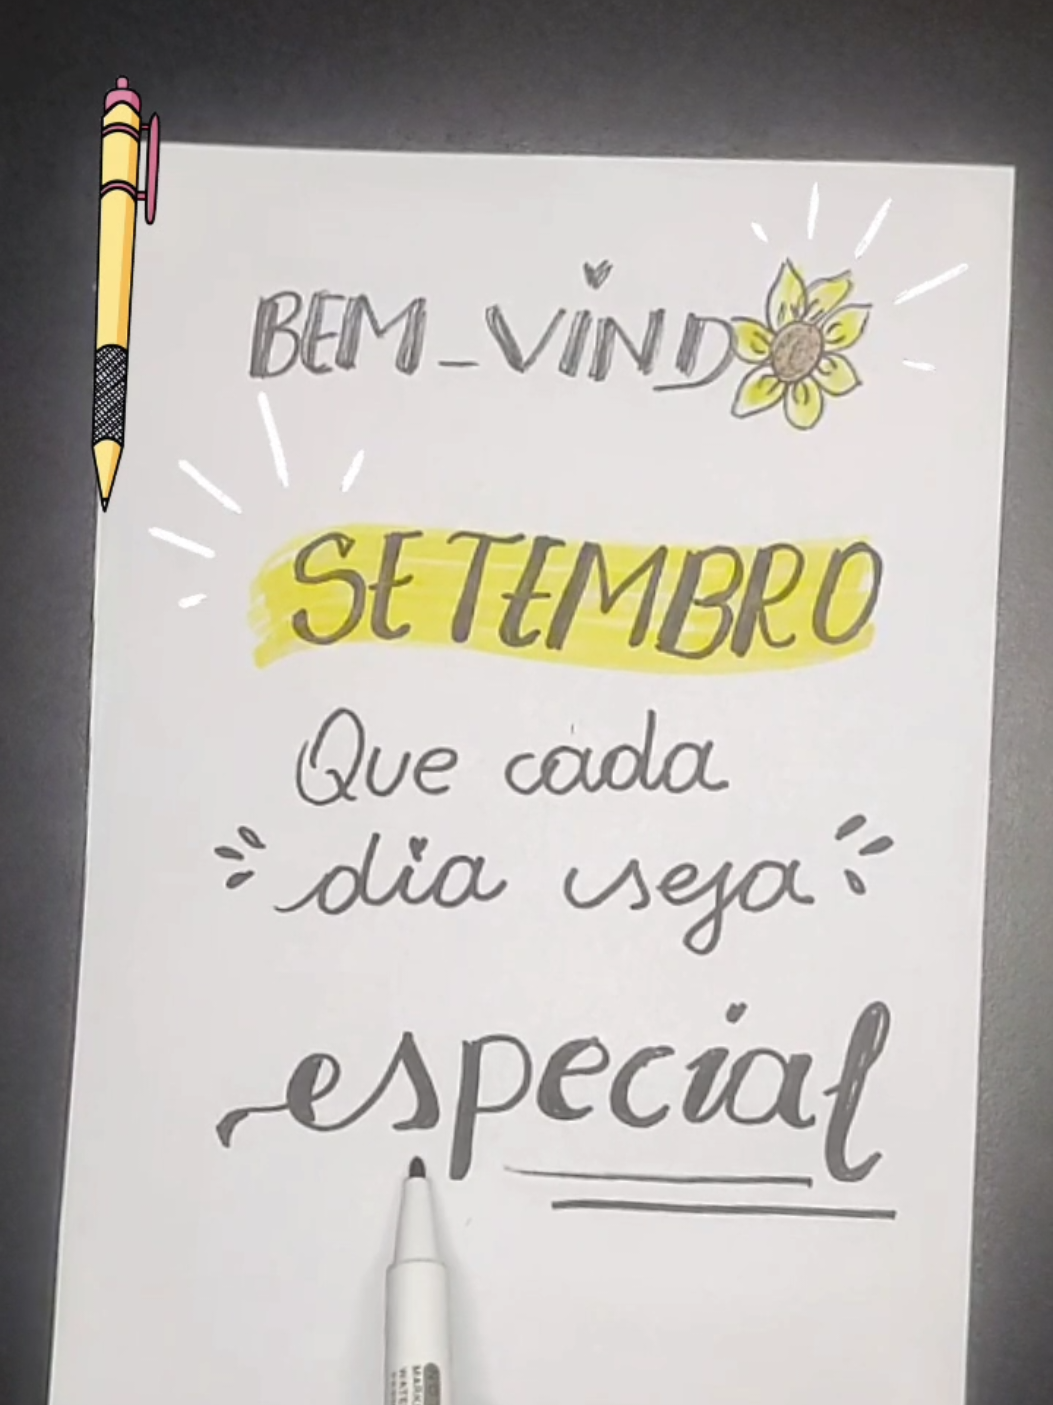 BEM-VIND
SETEMBRO
Que cada
dia seja
especial